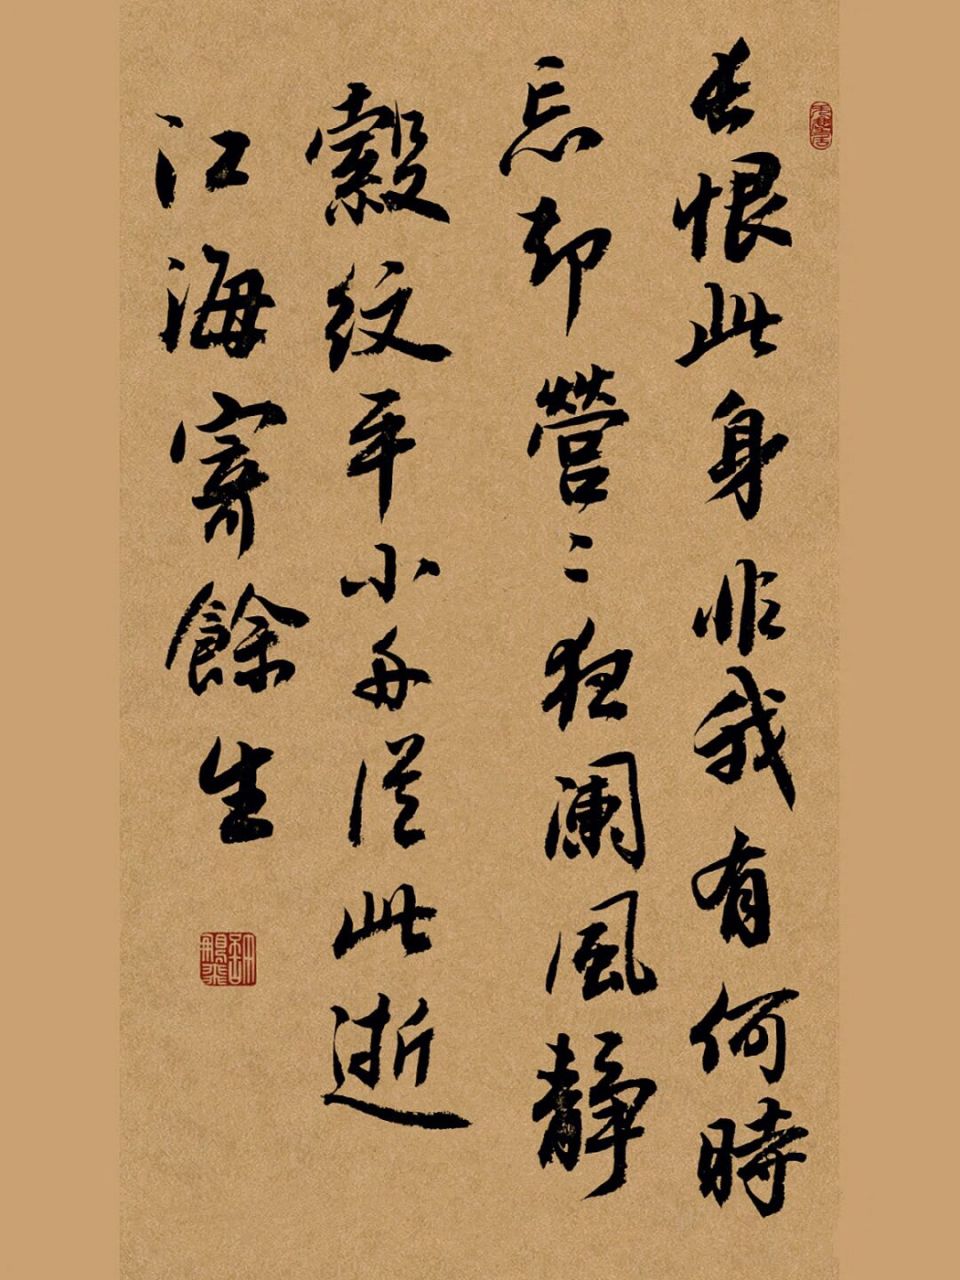 長恨此身非我有何時
忘却營〻狂瀾風靜
縠紋平小舟從此逝
江海寄餘生